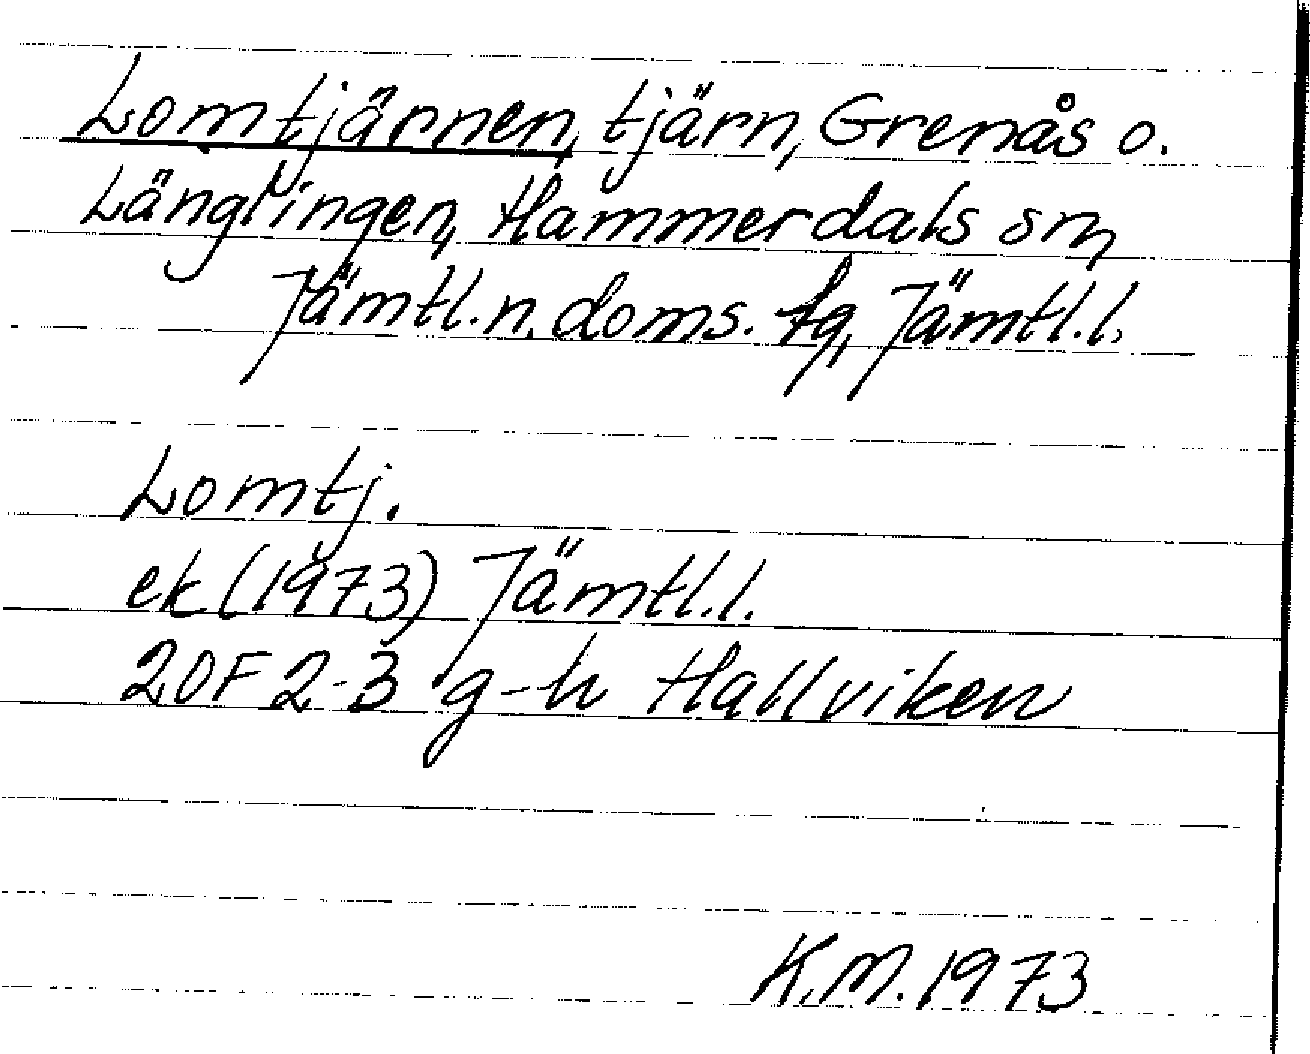 Lomtjärnen, tjärn, Grenås o.
Länglingen, Hammerdals sn,
Jämtl. n. doms. fg, Jämtl. l.
Lomtj.
ek (1973) Jämtl. l.
20F 2-3 g-h Hallviken
K.M. 1973